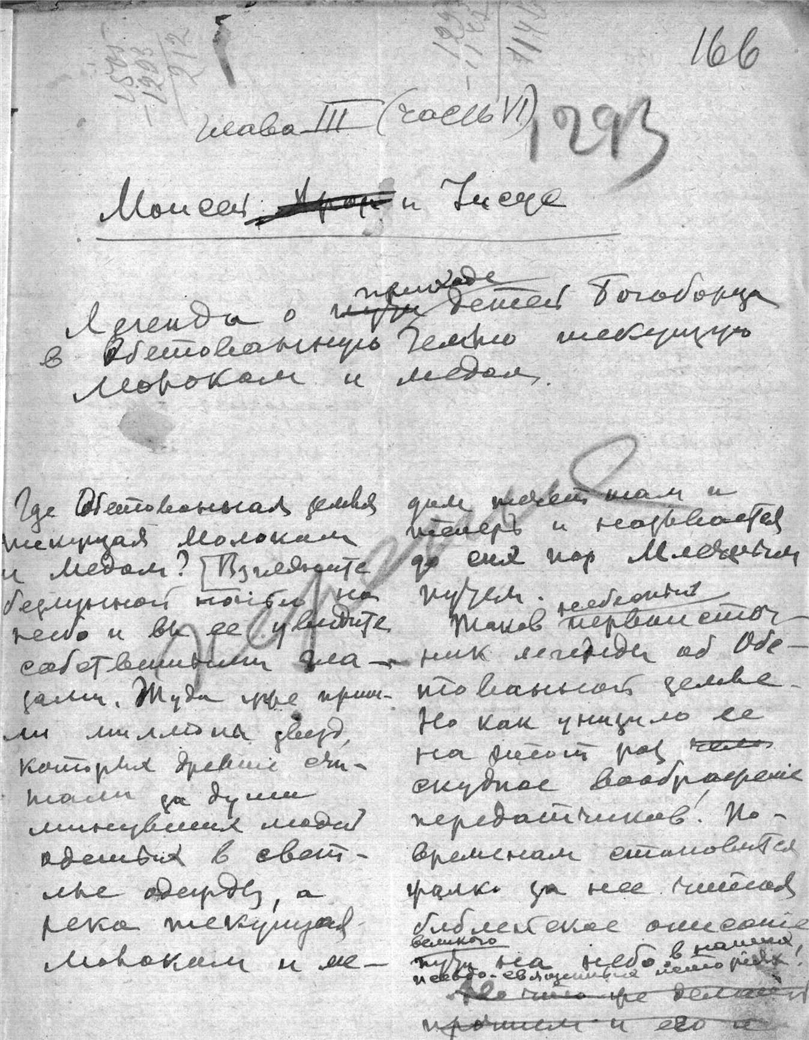 166
1501
-1293
212
глава III (часть VI)
1293
Моисей и Иисус
Легенда о приходе детей Богоборца
в Обетованную Землю текущую
Молоком и медом.
Где Обетованная земля
текущая молоком
и медом? [Взгляните
безлунной ночью на
небо и вы ее увидите
собственными гла-
зами. Туда уже приш-
ли миллионы звезд,
которых древние счи-
тали за души
минувших людей
одетых в свет-
лые одежды, а
река текущая
молоком и ме-
дом течет там и
теперь и называется
до сих пор Млечным
путем.
Таков небесный первоисточ-
ник легенды об Обе-
тованной земле.
Но как унизило ее
на этот раз
скудное воображение
передатчиков! По-
временам становится
жалко за нее читая
библейское описание
великого
пути на небо в наших
псевдо-священных историях!